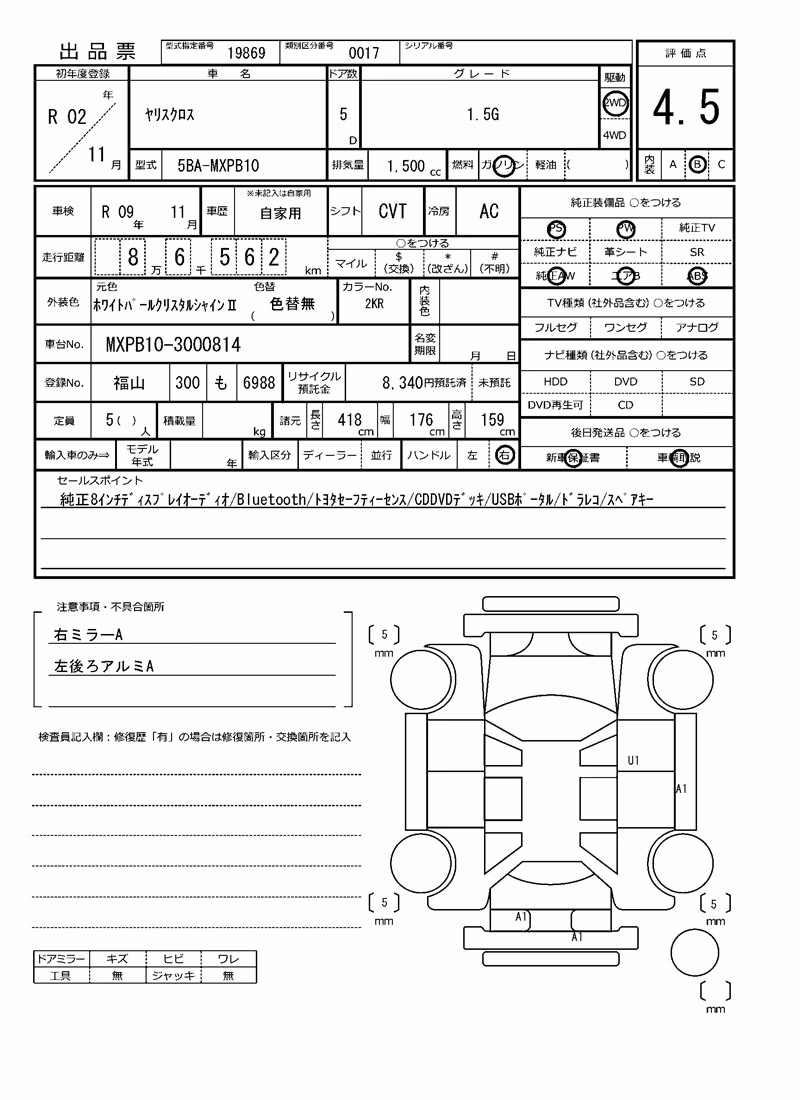 出品票 型式指定番号 19869 類別区分番号 0017 シリアル番号
評価点
4.5
内装 A B C
初年度登録 車名 ドア数 グレード 駆動
R 02 年 11 月 ヤリスクロス 5 D 1.5G 2WD
4WD
型式 5BA-MXPB10 排気量 1,500 cc 燃料 ガソリン 軽油 ( )
車検 R 09 年 11 月 車歴 ※未記入は自家用 自家用 シフト CVT 冷房 AC
走行距離 8 万 6 千 5 6 2 km ○をつける
マイル $ (交換) * (改ざん) # (不明)
外装色 元色 ホワイトパールクリスタルシャインⅡ 色替 ( 色替無 ) カラーNo. 2KR 内装色
車台No. MXPB10-3000814 名変期限 月 日
登録No. 福山 300 も 6988 リサイクル預託金 8,340円預託済 未預託
定員 5( ) 人 積載量 kg 諸元 長さ 418 cm 幅 176 cm 高さ 159 cm
輸入車のみ⇒ モデル年式 年 輸入区分 ディーラー 並行 ハンドル 左 右
純正装備品 ○をつける
PS PW 純正TV
純正ナビ 革シート SR
純正AW エアB ABS
TV種類 (社外品含む) ○をつける
フルセグ ワンセグ アナログ
ナビ種類 (社外品含む) ○をつける
HDD DVD SD
DVD再生可 CD
後日発送品 ○をつける
新車保証書 車輌取説
セールスポイント
純正8インチディスプレイオーディオ/Bluetooth/トヨタセーフティーセンス/CDDVDデッキ/USBポータル/ドラレコ/スペアキー
注意事項・不具合箇所
右ミラーA
左後ろアルミA
検査員記入欄：修復歴「有」の場合は修復箇所・交換箇所を記入
ドアミラー キズ ヒビ ワレ
工具 無 ジャッキ 無
5 mm
5 mm
U1
A1
5 mm
5 mm
A1
A1
mm